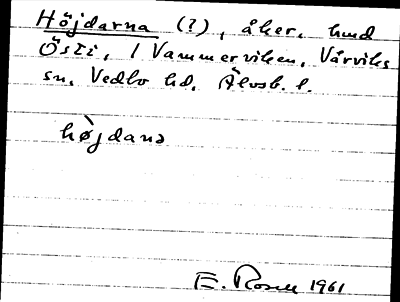 Höjdarna (?), åker, hmd
Östi, / Vammerviken, Vårviks
sn, Vedbo hd, Älvsb. l.
hø̀jdana
E. Rosell 1961